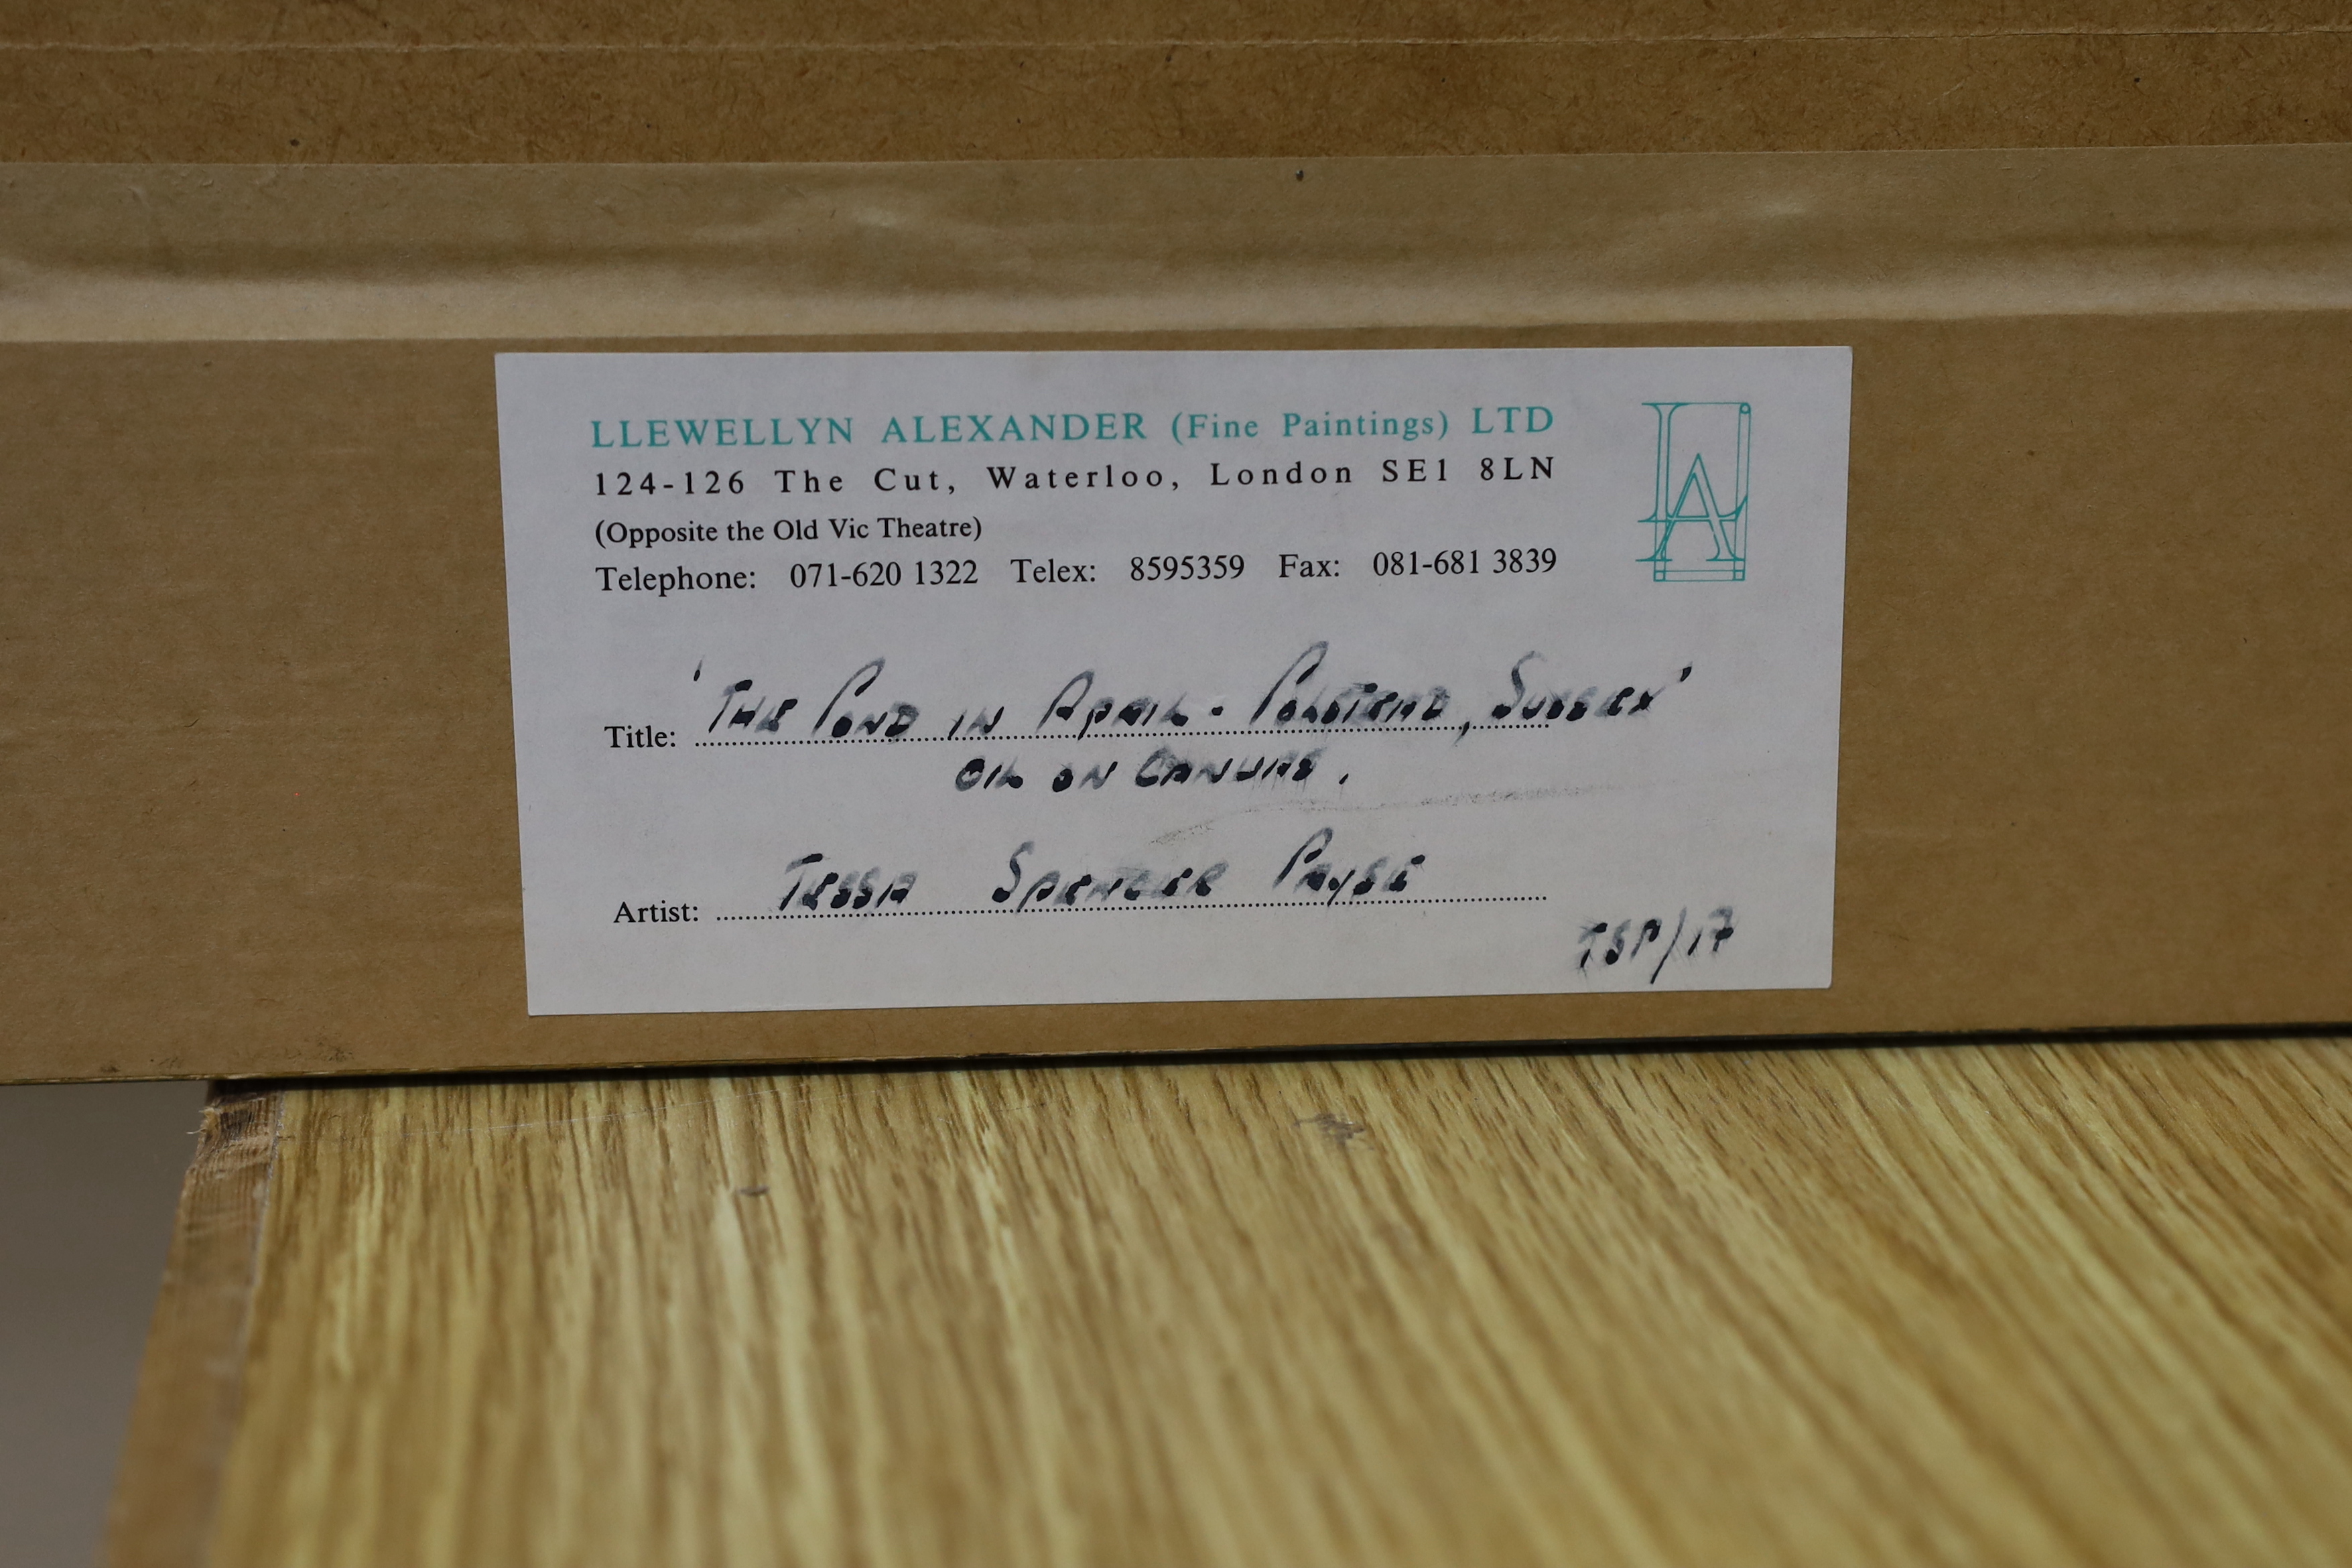 LLEWELLYN ALEXANDER (Fine Paintings) LTD
LA
124-126 The Cut, Waterloo, London SE1 8LN
(Opposite the Old Vic Theatre)
Telephone: 071-620 1322 Telex: 8595359 Fax: 081-681 3839
Title: 'THE POND IN APRIL - POLSTEAD, SUSSEX'
OIL ON CANVAS.
Artist: TESSA SPENCER PRYSE
TSP/17